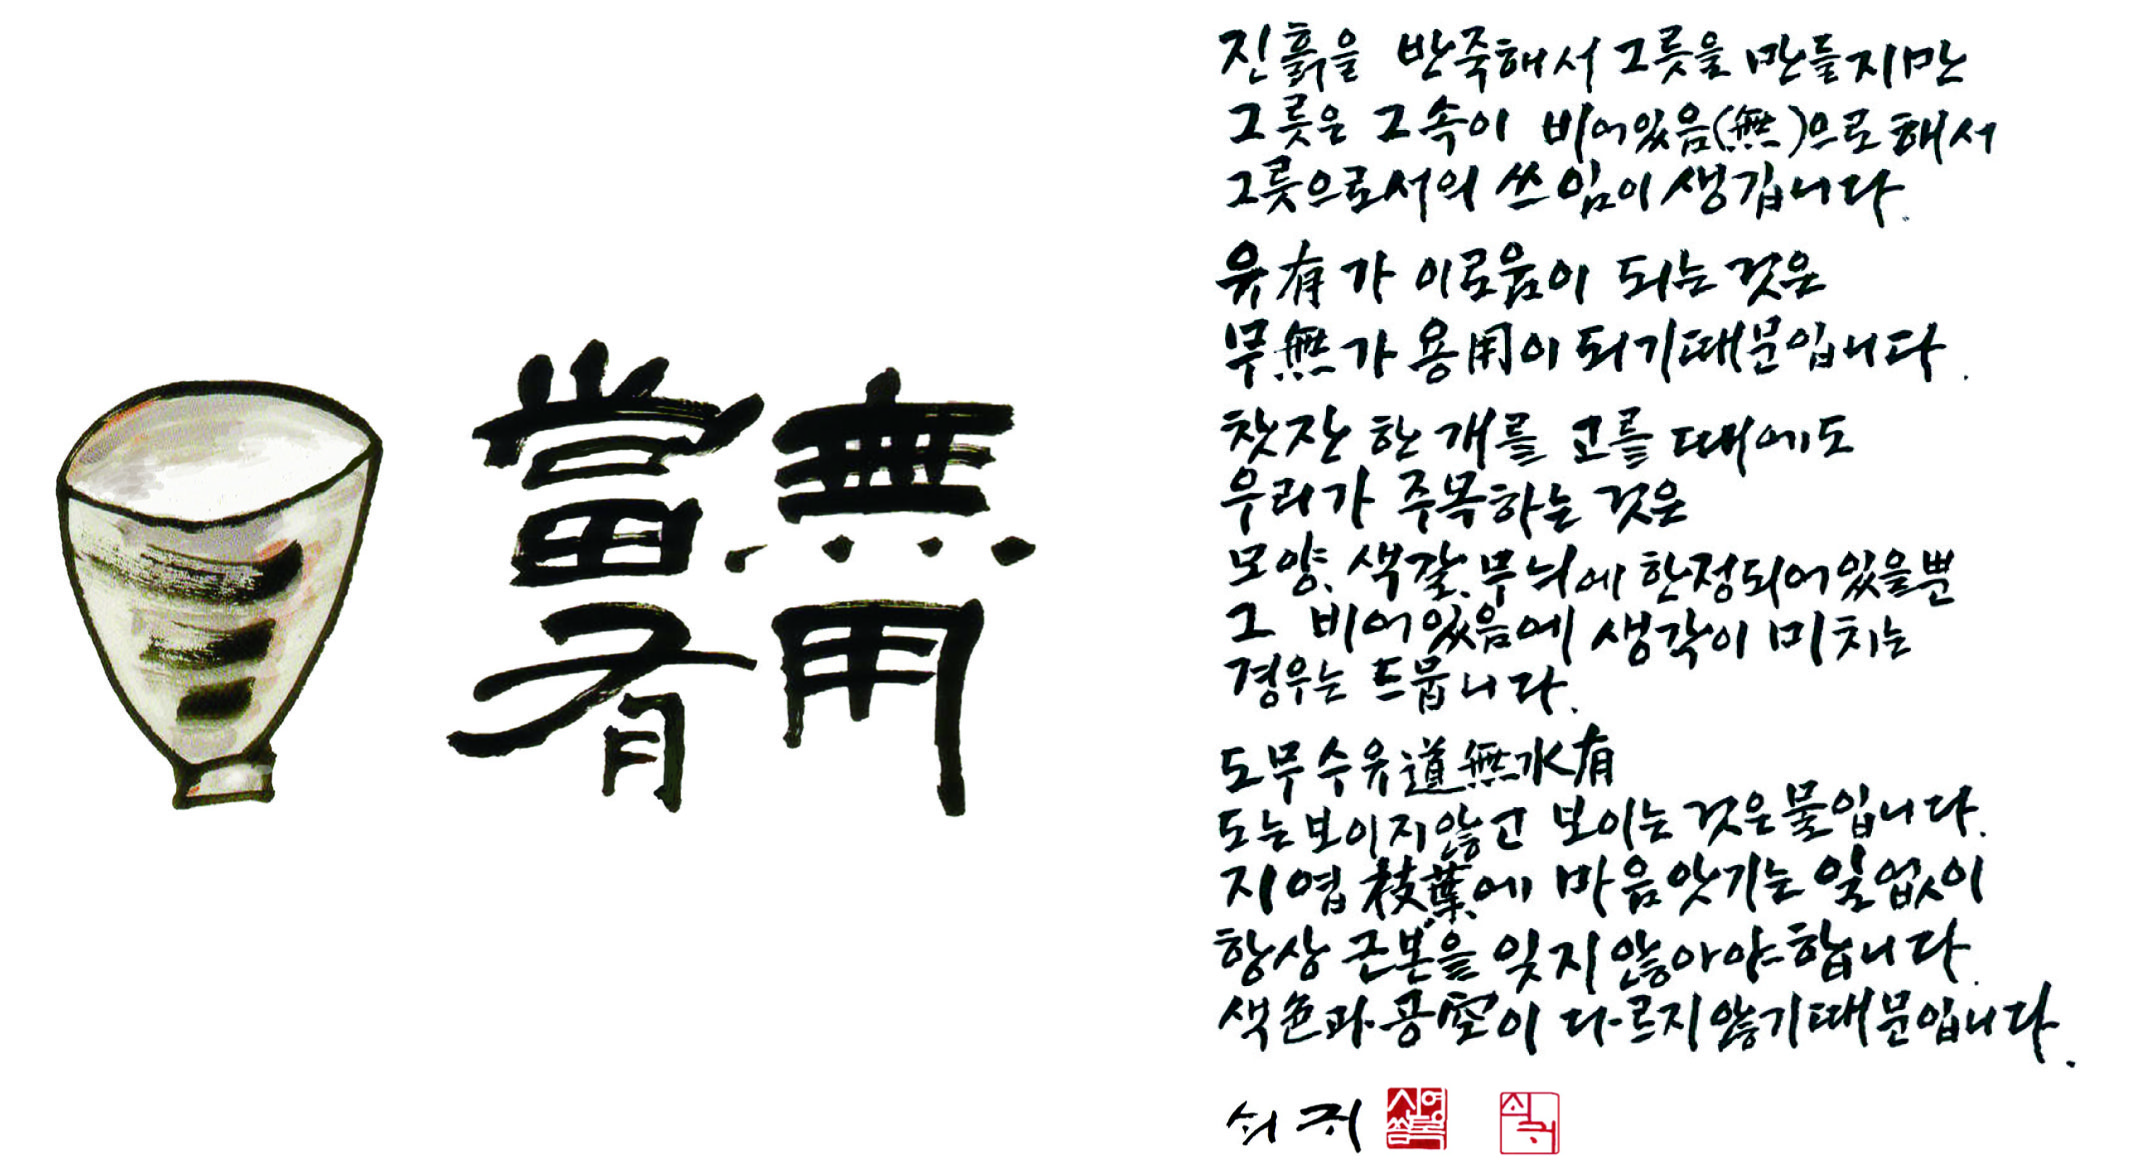 當無
有用
진흙을 반죽해서 그릇을 만들지만
그릇은 그 속이 비어있음(無)으로 해서
그릇으로서의 쓰임이 생깁니다.
유有가 이로움이 되는 것은
무無가 용用이 되기 때문입니다.
찻잔 한 개를 고를 때에도
우리가 주목하는 것은
모양, 색갈, 무늬에 한정되어 있을뿐
그 비어있음에 생각이 미치는
경우는 드뭅니다.
도무수유道無水有
도는 보이지 않고 보이는 것은 물입니다.
지엽枝葉에 마음 앗기는 일 없이
항상 근본을 잊지 않아야 합니다.
색色과 공空이 다르지 않기 때문입니다.
쇠귀
쇠귀